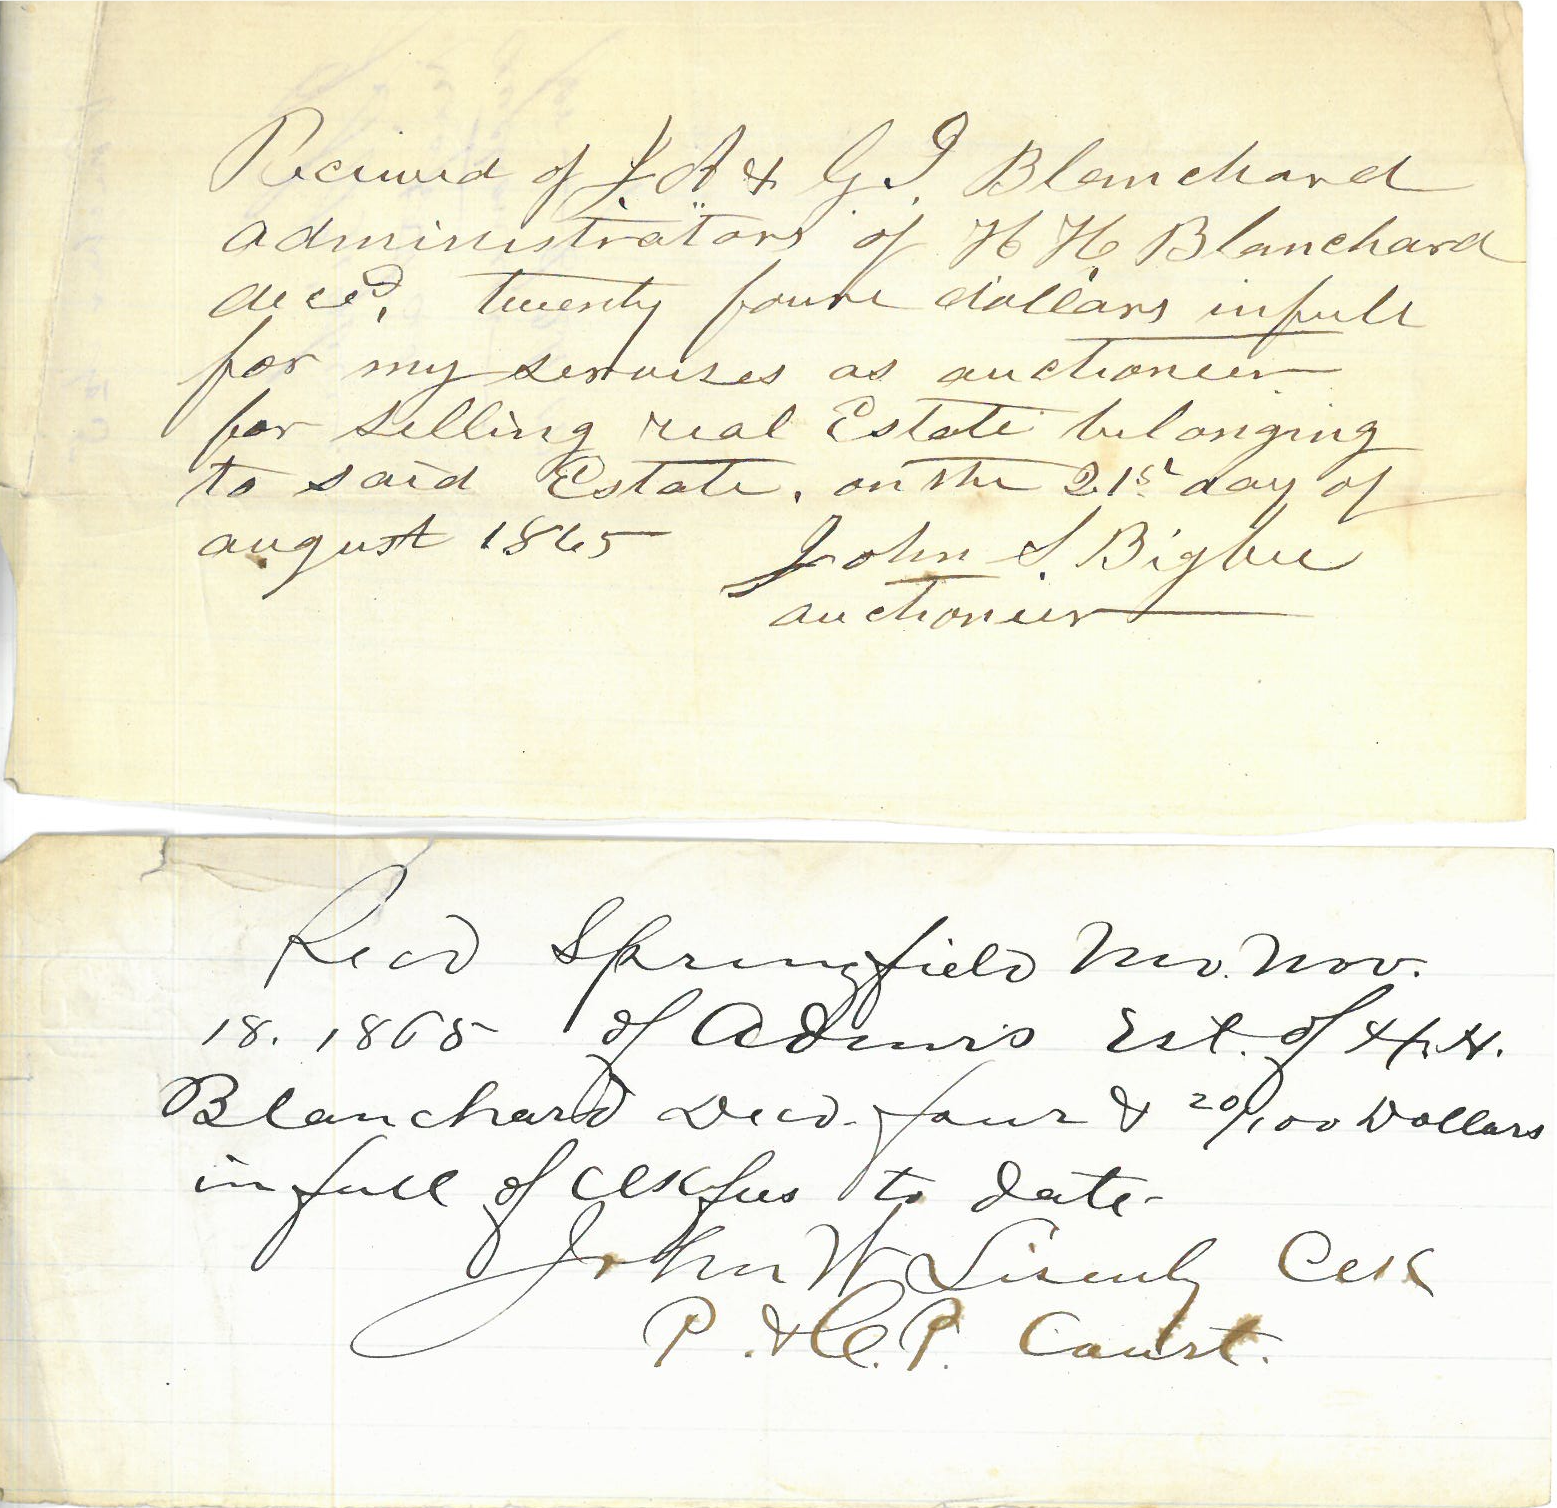 Reciived of J. A & G. I. Blanchard
administrators of H H. Blanchard
decd, twenty foure dollars in full
for my servises as auctioneer
for selling real Estate belonging
to said Estate, on the 21st day of
august 1865 John S. Bigbee
auctioneer
Recd Springfield Mo. Nov.
18. 1865 of Admrs Est. of H. H.
Blanchard Decd. four & 20/100 Dollars
in full of Clk fees to date-
John W Lisenby Clk
P. & C. P. Court.